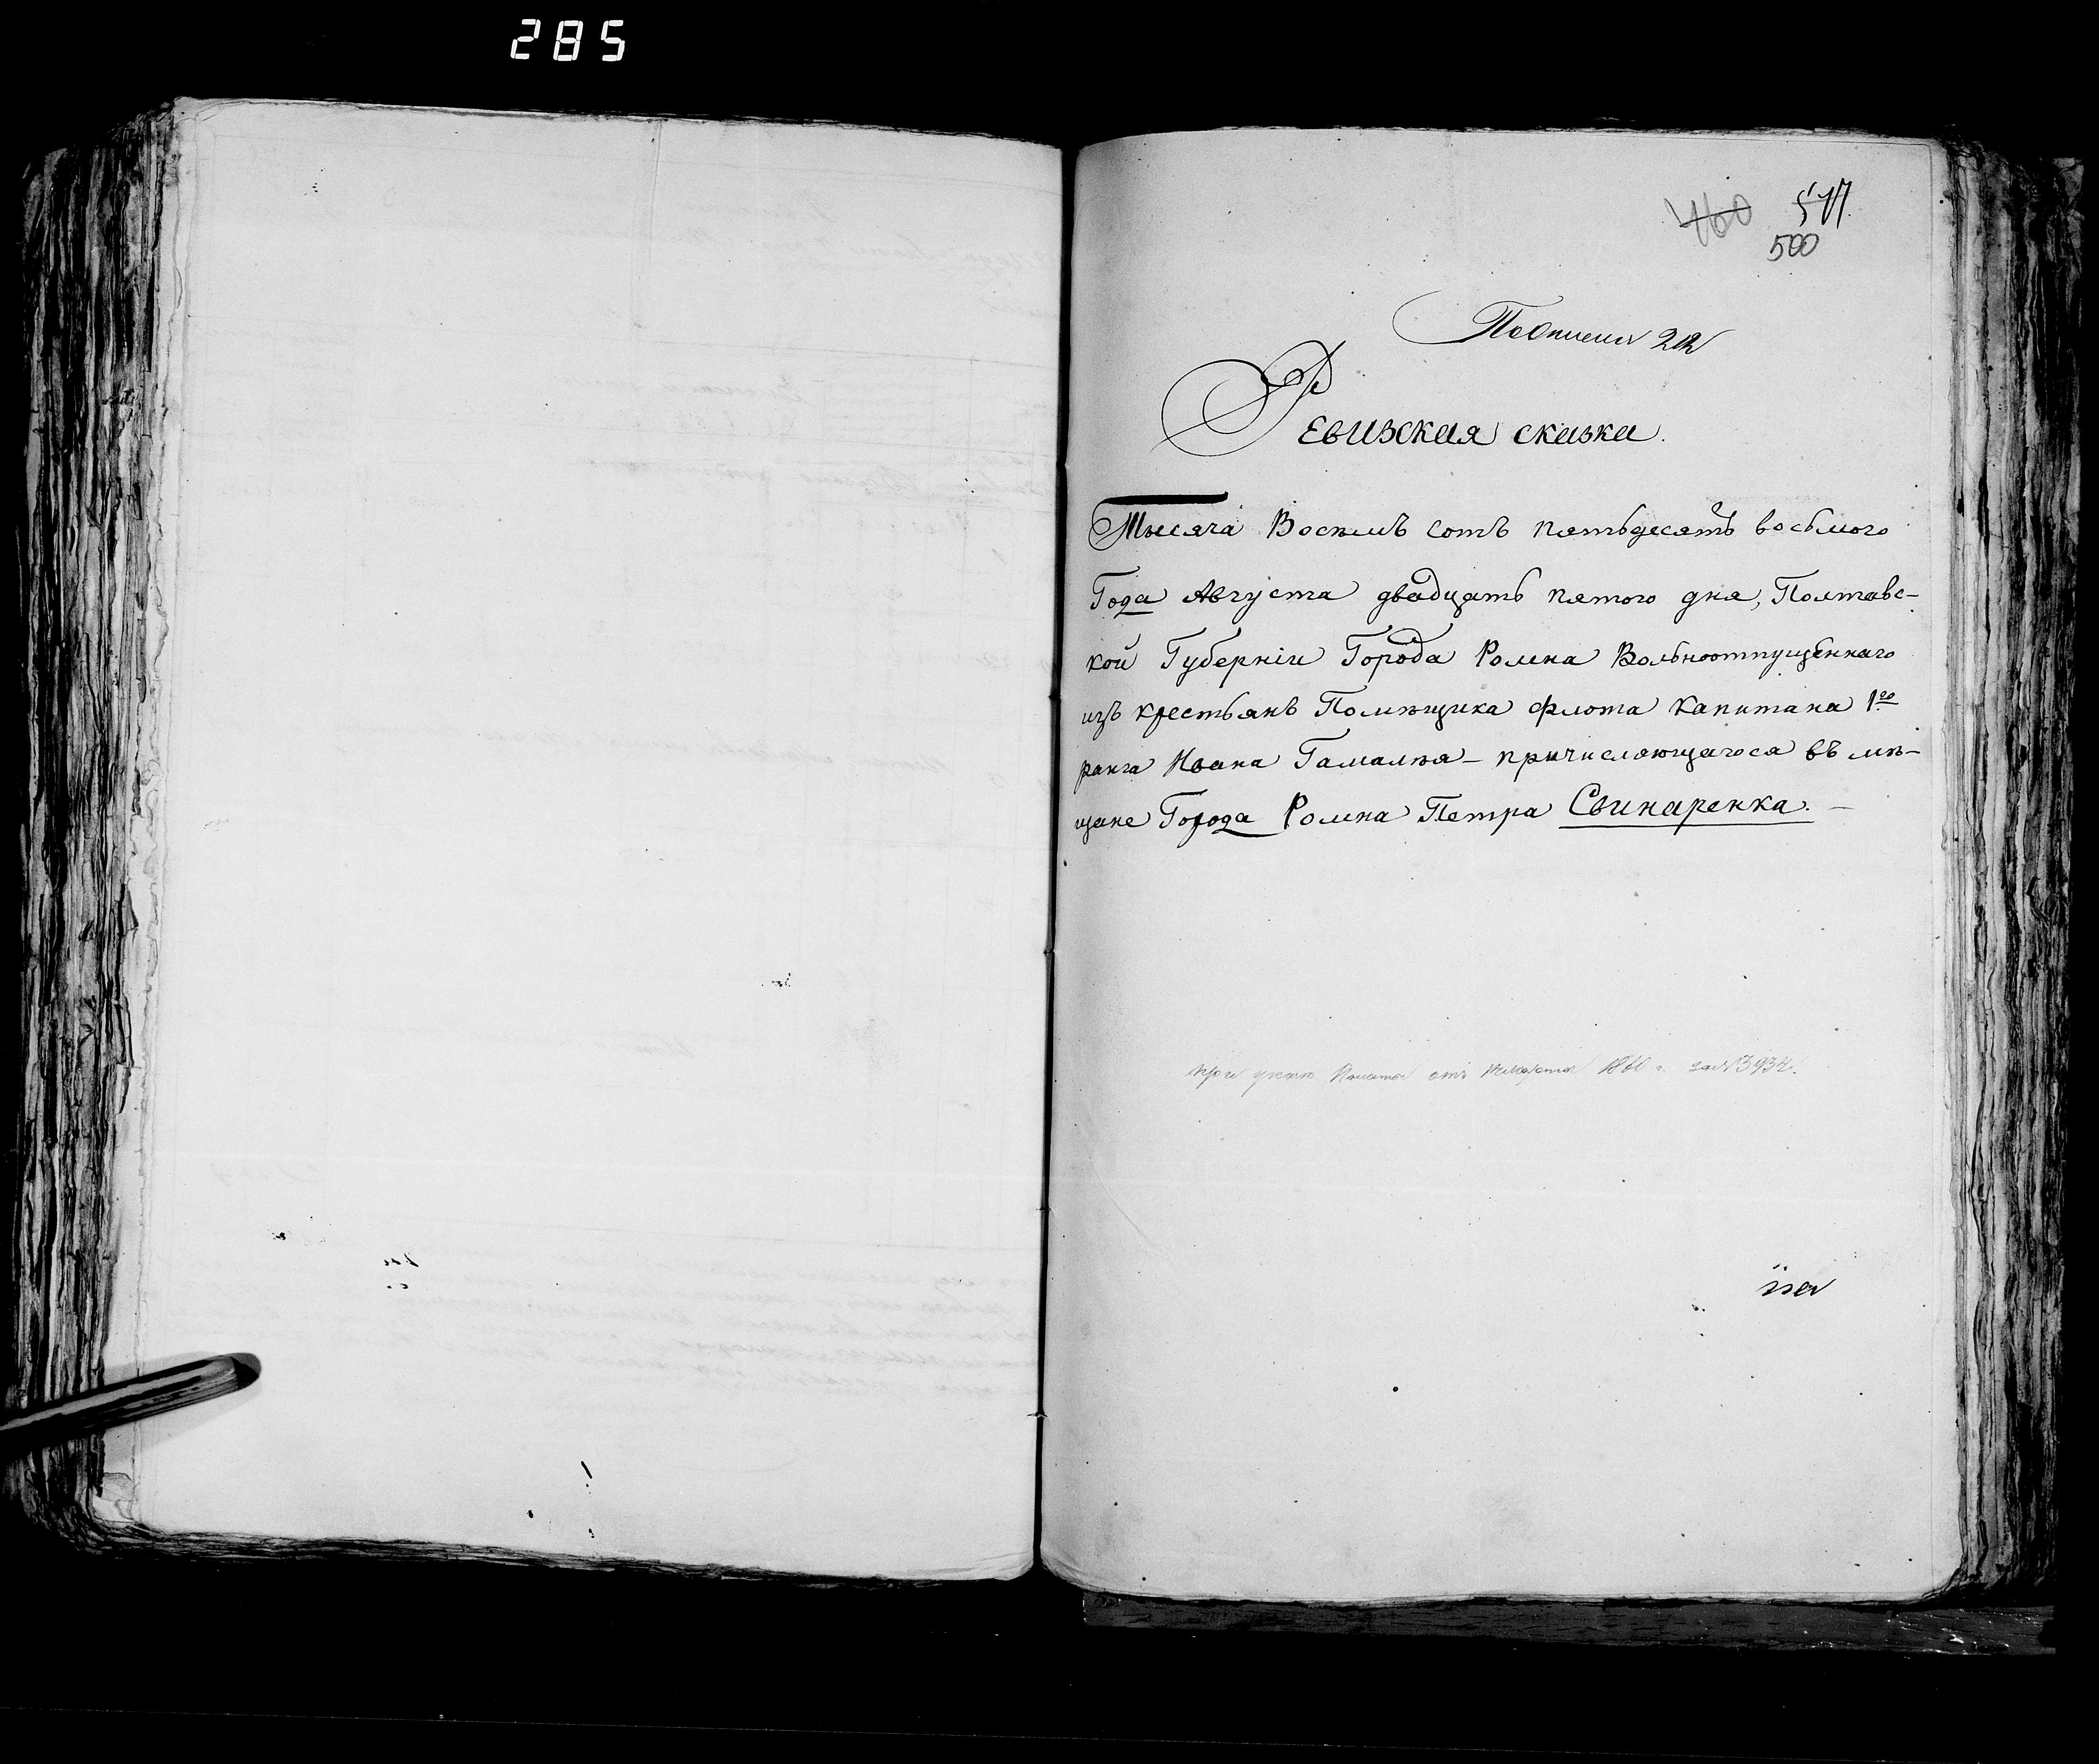 285
460 517.
500
По описи 212
Ревизская сказка.
Тысяча Восѣмъ сотъ пятьдесятъ восьмого
Года Августа двадцать пятого дня, Полтавс-
кой Губерніи Города Ромна Вольноотпущеннаго
изъ крестьянъ Помѣщика флота Капитана 1го
ранга Ивана Гамалѣя – причисляющагося въ мѣ-
щане Города Ромна Петра Свинаренка. –
при указѣ Палаты отъ марта 1860 г. за № 3934.